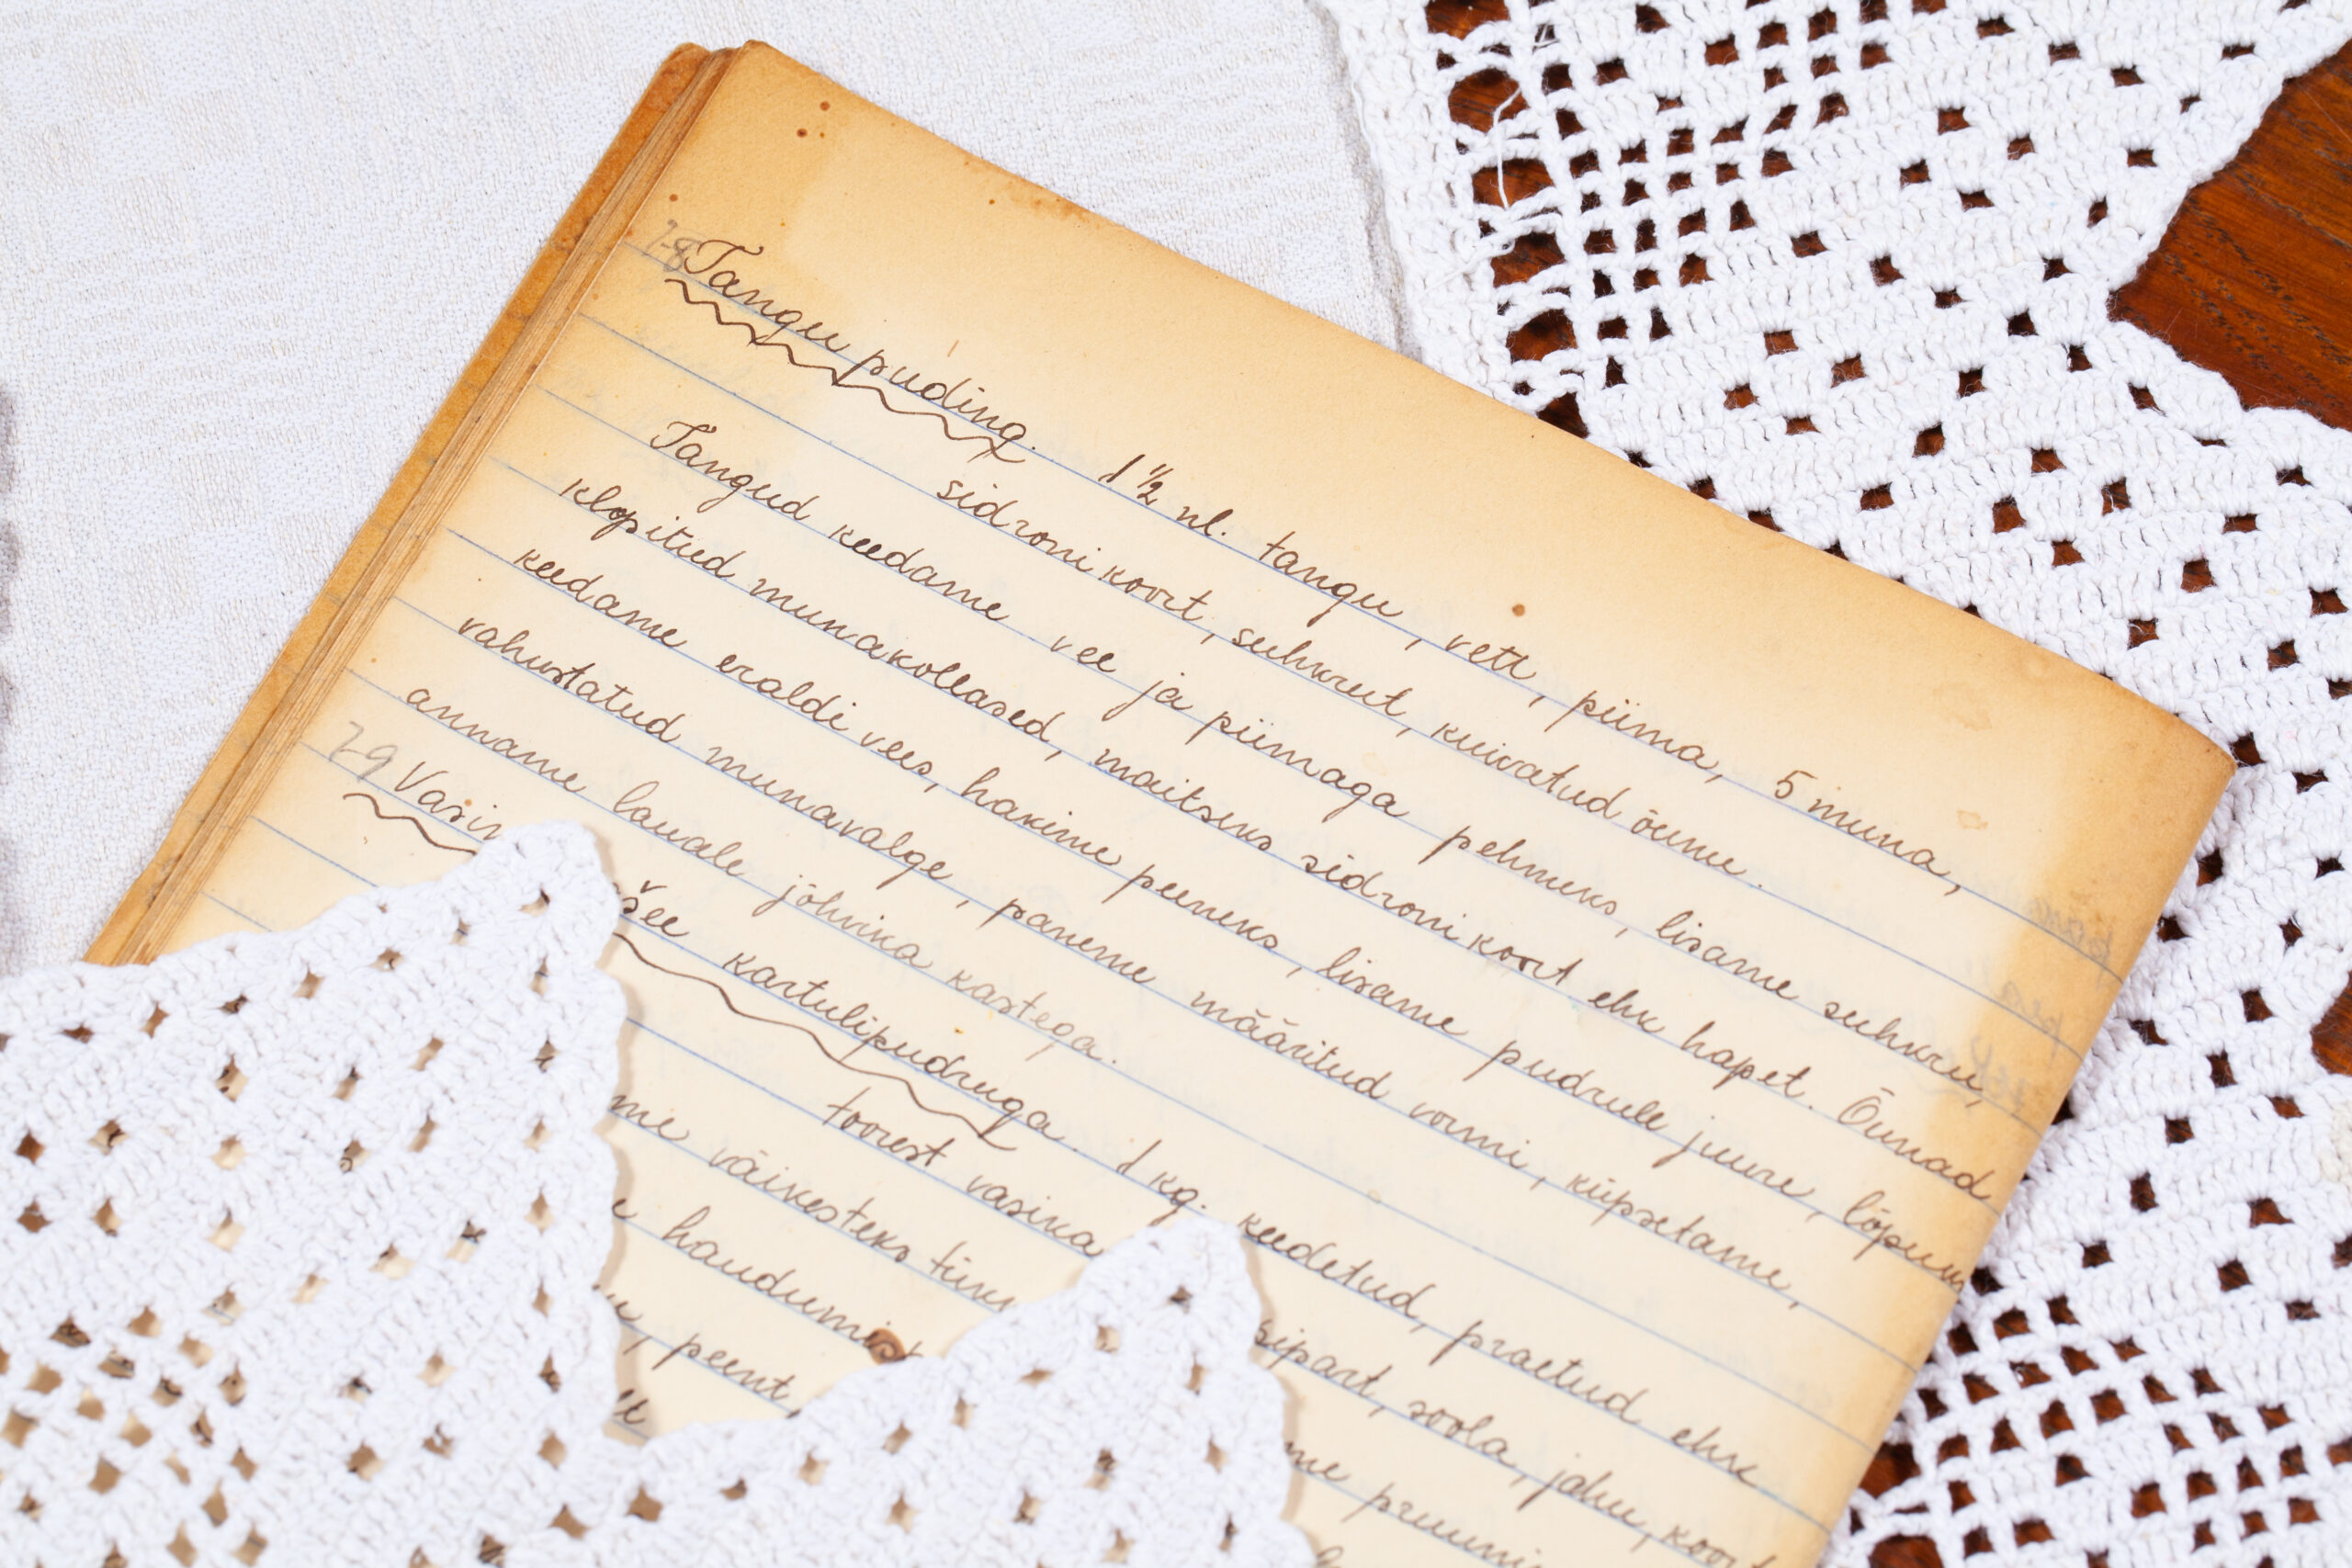 7-8 Tangu puding. 1 ½ nl. tangu, vett, piima, 5 muna,
sidroni koort, suhkrut, kuivatud õunu.
Tangud keedame vee ja piimaga pehmeks, lisame suhkru,
klopitud munakollased, maitseks sidroni koort ehk hapet. Õunad
keedame eraldi vees, hakime peeneks, lisame pudrule juure, lõpuks
vahustatud munavalge, paneme määritud vormi, küpsetame,
anname lauale jõhvika kastega.
7-9 Vasi šee kartulipudruga. 1 kg. keedetud, praetud ehk
toorest vasika sipart, soola, jahu, koort
me väikesteks tük
haudumist me pruuni
, peent,